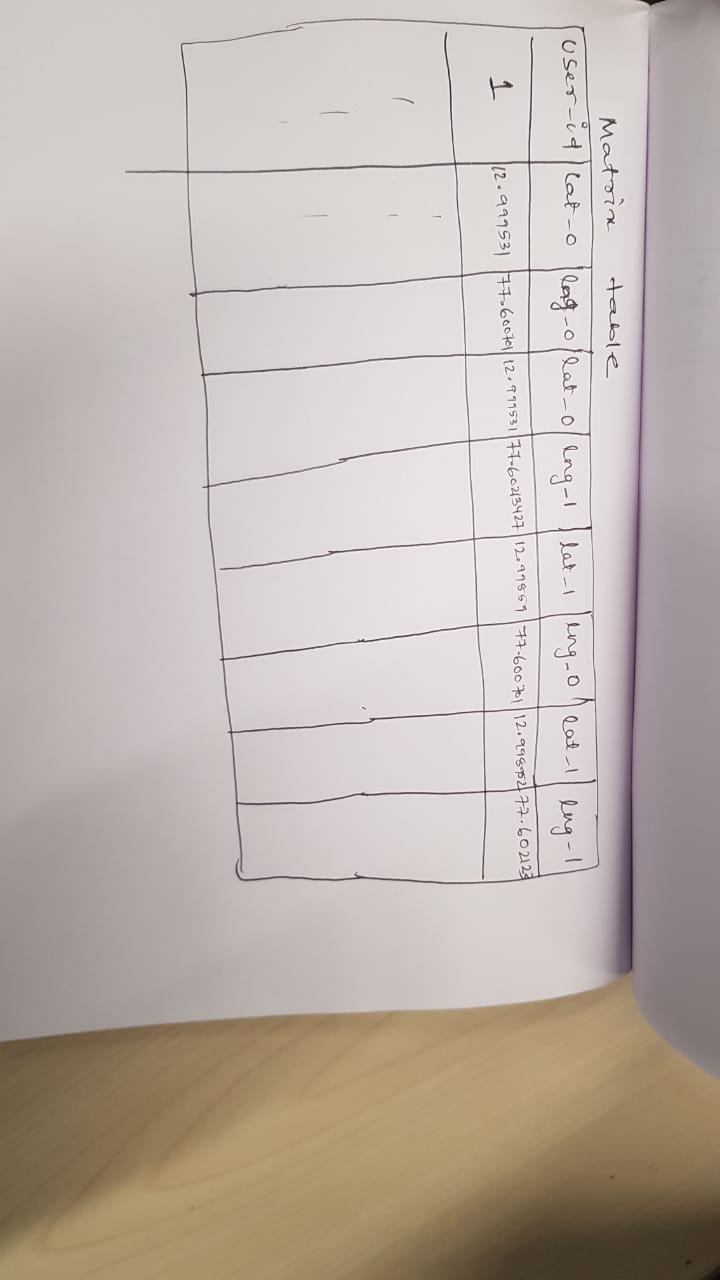 Matrix table
user-id lat-0 lng-0 lat-0 lng-1 lat-1 lng-0 lat-1 lng-1
1 12.999531 77.600701 12.999531 77.60213427 12.99859 77.600701 77.602123